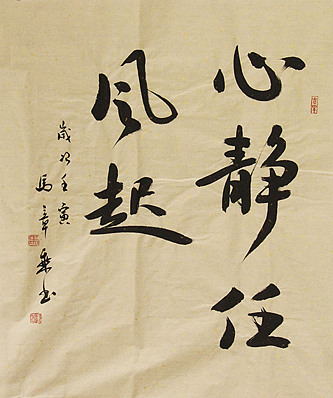 心静任
风起
歲次壬寅
馬章乘书